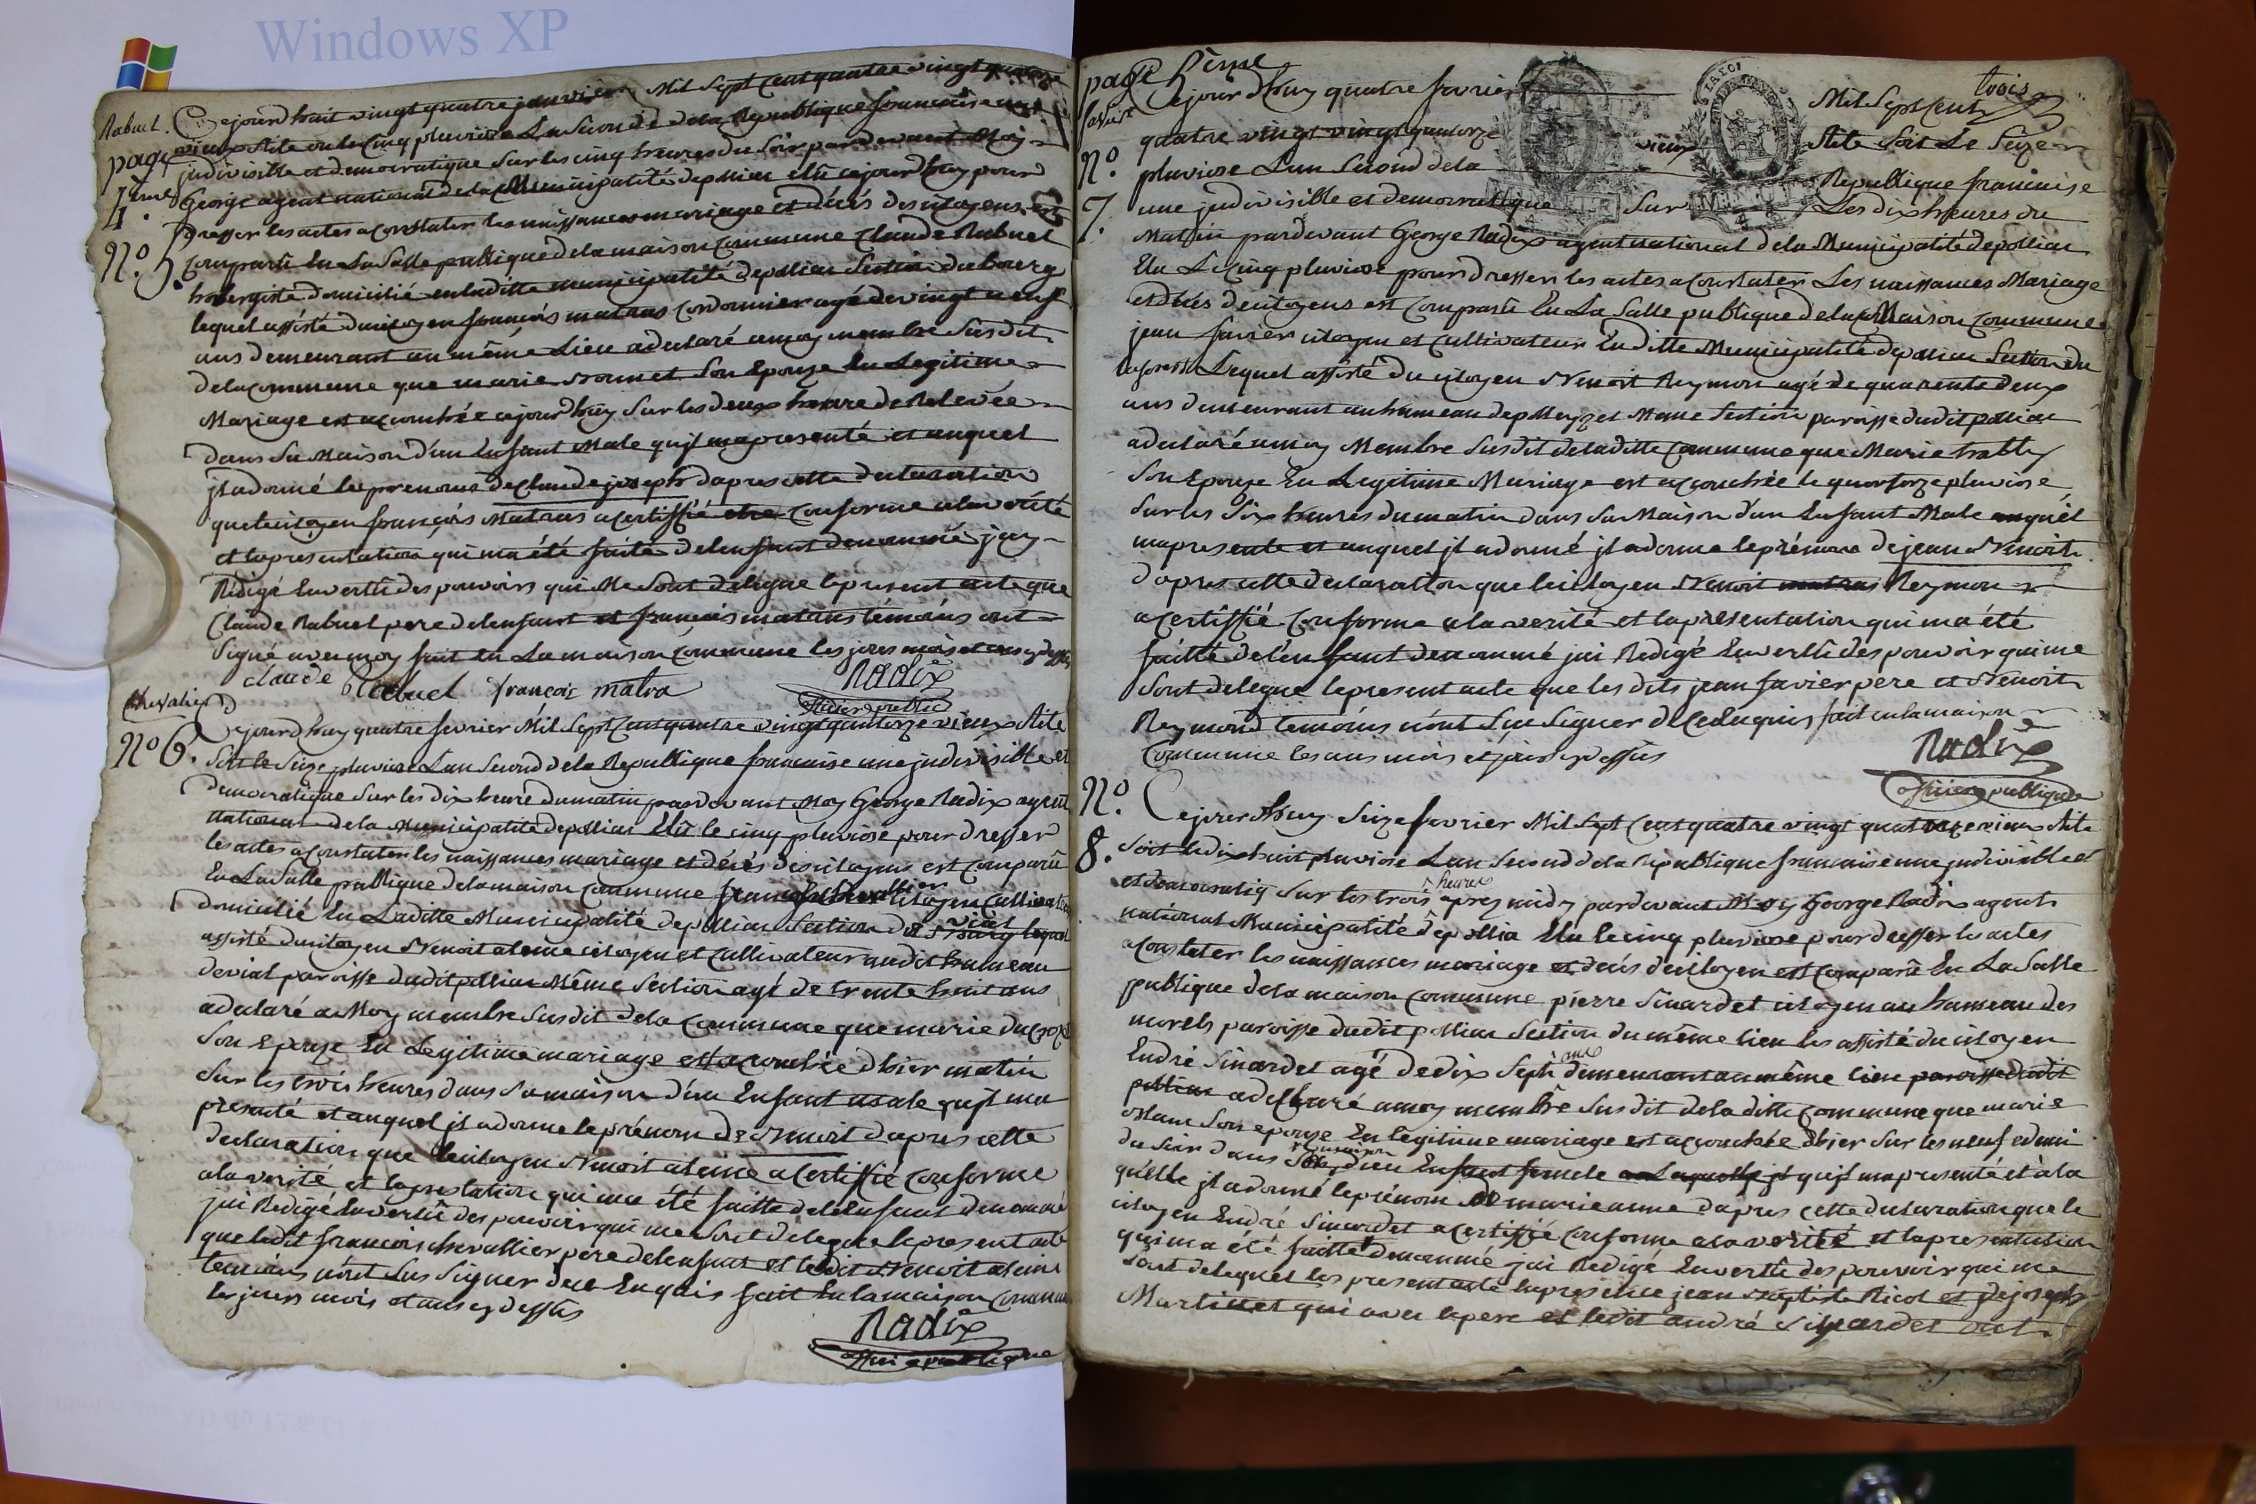 Windows XP
Rabuel. Cejourd huit vingt quatre janvier Mil Sept Cent quatre vingt quatorze
page vieux stile ou le cinq pluviose La Seconde dela Republique francaise une
4ème judivisible et democratique Sur les cinq heures du Soir pardevant Moy
George agent national dela Municipalité depolliac élû cejourdhuy pour
Dresser les actes a Constater les naissances mariage et décés des citoyens est
N°. 5. Comparû En La Salle publique dela maison commune Claude Rabuel
hobergiste domicilié enladitte municipalité depolliac Section du bourg
lequel assisté ducitoyen francois matras Cordonnier agé devingt neuf
ans demeurant aumême Lieu adeclaré amoy membre Susdit
delacommune que marie Bonnet Son Epouze En Legitime
Mariage est accouchée cejourdhuy Sur les deux heure de Relevée
dans Sa Maison d'un Enfant Male qu'jl mapresenté et auquel
jladonné leprenoms de Claude joseph dapres cette declaration
quelecitoyen françois Matras acertiffié etre Conforme alaverité
et lapresentation qui ma été faite delenfant denommé jay
Rédigé Envertû des pouvoirs qui Me Sont delégue lepresent acte que
Claude Rabuel pere delenfant et francois matras témoins ont
Signé avec moy fait En La maison Commune les jours mois et ans cy dessus
claude Rabuel françois matra Radix
officier public
Chevalier
N° 6. Cejourdhuy quatre fevrier Mil Sept Cent quatre vingt quatorze vieux Stile
Soit le Seize pluviose Lan Second dela Republique francaise une judivisible et
democratique Sur les dix heure dumatin pardevant Moy George Radix agent
national dela Municipalité depolliac Elû le cinq pluviose pour dresser
les actes aConstater les naissances mariage et décés des citoyens est Comparû
En LaSalle publique delamaison Commune francois Chevallier citoyen Cultivateur
domicilié En Laditte Municipalité depolliac Section de vial lequel
assisté ducitoyen Benoit alemc citoyen et Cultivateur audit hameau
devial paroisse dudit polliac Même Section agé de trente huit ans
adeclaré a Moy membre Susdit dela Commune que marie ducroz
Son Epouze En Legitime mariage est accouchée d'hier matin
Sur les trois heures dans Samaison d'un Enfant male qu'jl ma
presenté et auquel jl adonne leprénom de Benoit dapres cette
declaration que lecitoyen Benoit aleme acertiffié Conforme
alaverité et lapresentation qui ma été faitte delenfant denommé
jai Redigé Envertû des pouvoir qui me Sont delegue lepresent acte
que ledit francois chevallier pere delenfant et ledit Benoit aleme
temoins n'ont Sus Signer dece Enquis fait En lamaison Commune
les jours mois et ans cy dessus
Radix
officier publique
page 5ème trois
favier Cejourd'huy quatre fevrier Mil Sept Cent
quatre vingt vingt quatorze vieux Stile Soit Le Seize
N°. pluviose Lan Second dela Republique francaise
7. une judivisible et democratique Sur Les dix heures du
Matin pardevant George Radix agent national dela Municipalité depolliac
Elu Le Cinq pluviose pour dresser les actes aConstater Les naissances Mariage
et décés decitoyens est Comparû En La Salle publique delaMaison Commune
jean favier citoyen et Cultivateur En ditte Municipalité depolliac Section du
Lequel assisté du citoyen Benoit Reymon agé de quarente deux
ans demeurant auhameau depolleyzet Même Section paroisse dudit polliac
adeclaré amoy Membre Susdit deladitte Commune que Marie
Son Epouze En Legitime Mariage est accouchée le quatorze pluviose
Sur les Six heures dumatin dans Sa Maison d'un Enfant Male auquel
mapresente et auquel jl adonné jl adonne leprénom de jean Benoit
Dapres cette declaration que lecitoyen Benoit matras Reymon
acertiffié Conforme alaverité et lapresentation qui ma été
faitte delenfant denommé jai Redigé Envertû des pouvoir quime
Sont delegue lepresent acte que les dits jean favier pere et Benoit
Reymond temoins n'ont Sue Signer de Ce Enquis fait en lamaison
Commune les ans mois et jours cy dessus Radix
officier publique
N°. Cejourdhuy Seize fevrier Mil Sept Cent quatre vingt quatorze vieux stile
8. Soit ledixhuit pluviose Lan Second dela republique francaise une judivisible et
et democratiq Sur les trois heures apres midy pardevant Moy George Radix agent
national Municipalité depollia Elu le cinq pluviose pour dresser les actes
aConstater les naissances mariage et décés decitoyen est Comparû En La Salle
publique dela maison Commune pierre Sinardet citoyen au hameau des
morels paroisse dudit polliac Section du même lieu les assisté ducitoyen
Endré Sinardet agé dedix Sept ans demeurant aumême lieu paroisse dudit
polliac adelharé amoy membre Susdit dela ditte Commune que marie
Son epouze En legitime mariage est accouchée dhier Sur les neuf edemi
du Soir dans Samaison dun Enfant femele a Laquelle jl qu'jl mapresenté et à la
quelle jl adonné leprénom de marieanne Dapres cette declaration que le
citoyen Endré Sinardet acertiffié Conforme alaverité et lapresentation
qui ma été faitte denommé jai Redigé Envertû des pouvoir qui me
Sont deleguet les present acte lapresence jean Baptiste Ricol et de joseph
Martinet qui avec lepere et ledit andré Sinardet ont